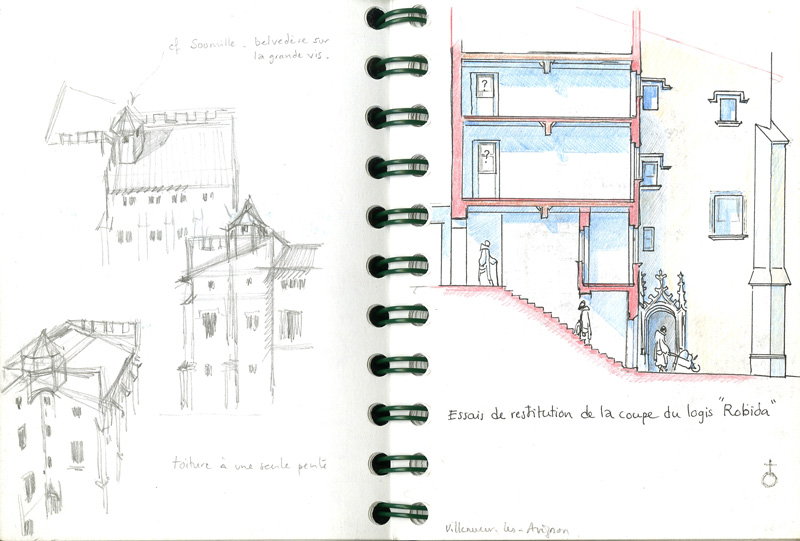 cf Sounville - belvedère sur
la grande vis.
toiture à une seule pente
?
?
Essais de restitution de la coupe du logis "Robida"
Villeneuve-les-Avignon